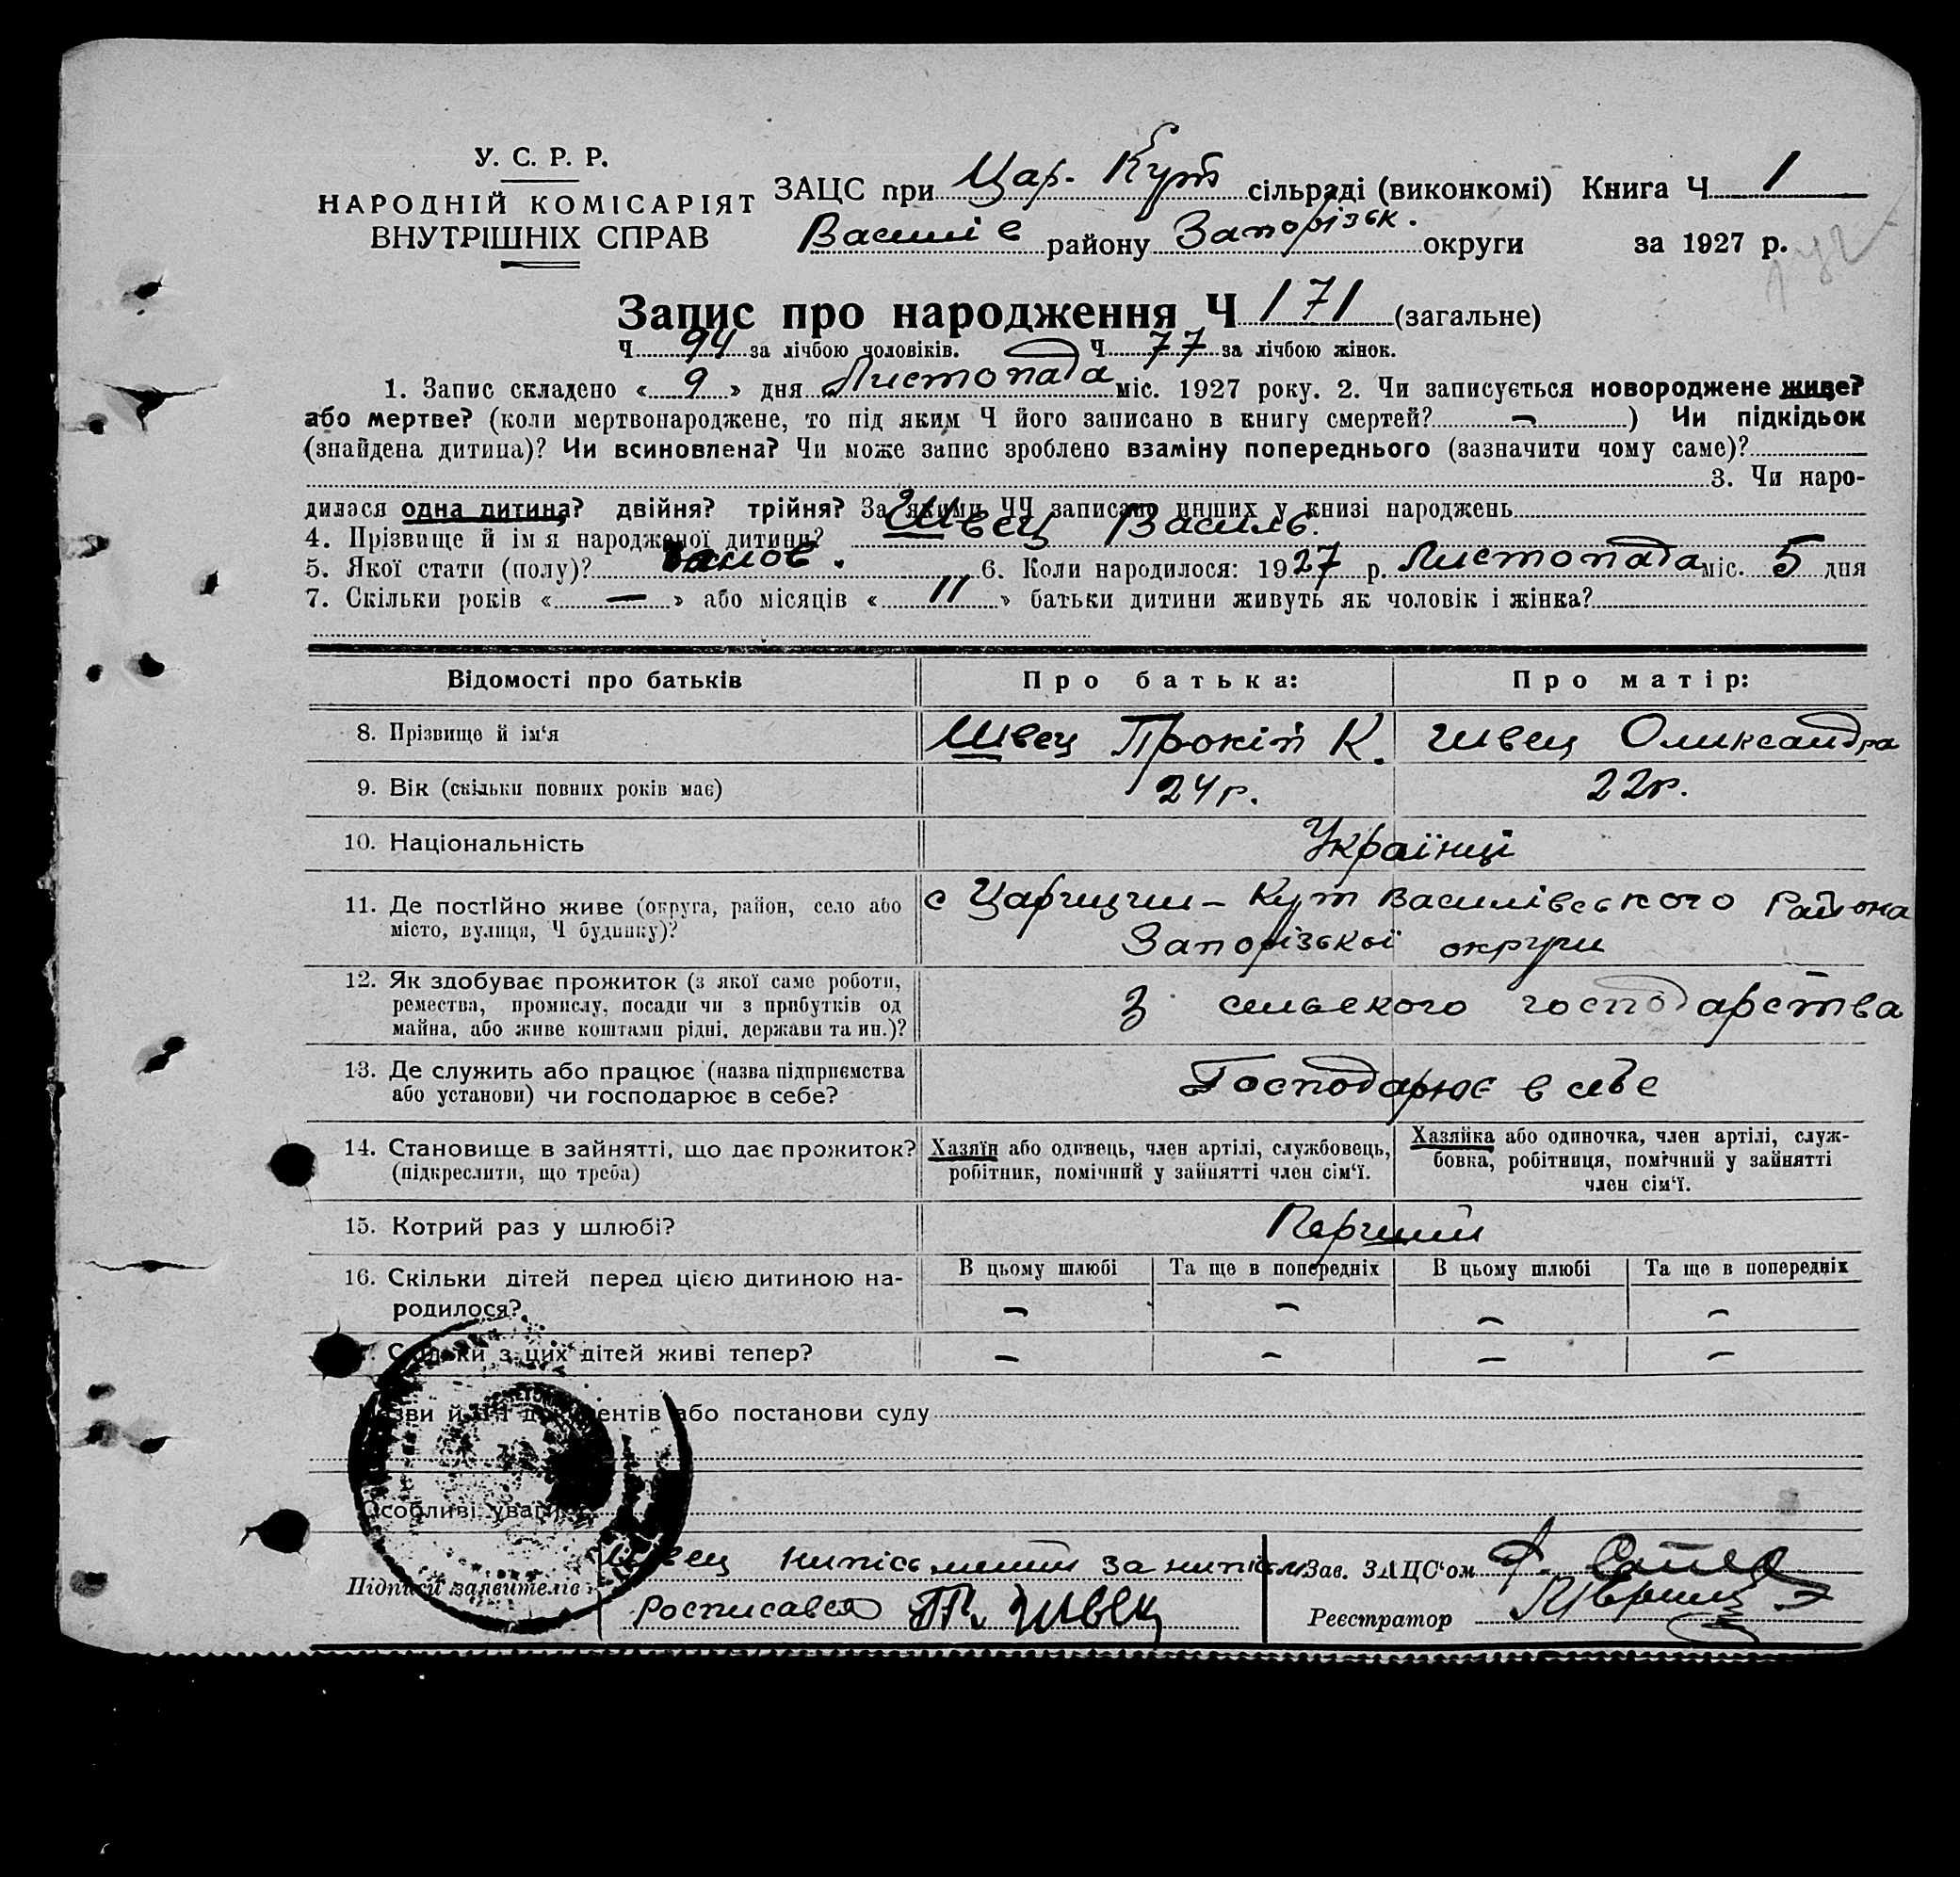 У. С. Р. Р.
НАРОДНІЙ КОМІСАРІЯТ
ВНУТРІШНІХ СПРАВ
ЗАЦС при Цар- Кут сільраді (виконкомі) Книга Ч 1
Василів району Запорізьк. округи за 1927 р.
Запис про народження Ч 171 (загальне)
Ч 94 за лічбою чоловіків. Ч 77 за лічбою жінок.
1. Запис складено « 9 » дня Листопада міс. 1927 року. 2. Чи записується новороджене живе?
або мертве? (коли мертвонароджене, то під яким Ч його записано в книгу смертей? — ) Чи підкідьок
(знайдена дитина)? Чи всиновлена? Чи може запис зроблено взаміну попереднього (зазначити чому саме)?
3. Чи наро-
дилася одна дитина? двійня? трійня? За якими ЧЧ записано инших у книзі народжень
4. Прізвище й ім я народженої дитини? Швец Василь.
5. Якої стати (полу)? 6. Коли народилося: 1927 р. Листопада міс. 5 дня
7. Скільки років « — » або місяців « 11 » батьки дитини живуть як чоловік і жінка?
Відомості про батьків Про батька: Про матір:
8. Прізвище й ім‘я Швец Прокіп К. Швец Олександра
9. Вік (скільки повних років має) 24р. 22р.
10. Національність Українці
11. Де постІйно живе (округа, район, село або місто, вулиця, Ч будинку)? с Царицин-Кут Василівського Района
Запорізької округи
12. Як здобуває прожиток (з якої саме роботи,
ремества, промислу, посади чи з прибутків од
майна, або живе коштами рідні, держави та ин.)? З сельского господарства
13. Де служить або працює (назва підприємства
або установи) чи господарює в себе? Господарює в себе
14. Становище в зайнятті, що дає прожиток?
(підкреслити, що треба)
Хазяїн або одинець, член артілі, службовець,
робітник, помічний у зайнятті член сім‘ї.
Хазяйка або одиночка, член артілі, служ-
бовка, робітниця, помічний у зайнятті
член сім‘ї.
15. Котрий раз у шлюбі? Перший
16. Скільки дітей перед цією дитиною на-
родилося?
В цьому шлюбі Та ще в попередніх В цьому шлюбі Та ще в попередніх
— — — —
Скільки з цих дітей живі тепер? — — — —
або постанови суду
Особливі уваги
Підписи заявителів Швец
Росписався П. Швец
Зав. ЗАЦС‘ом
Реєстратор